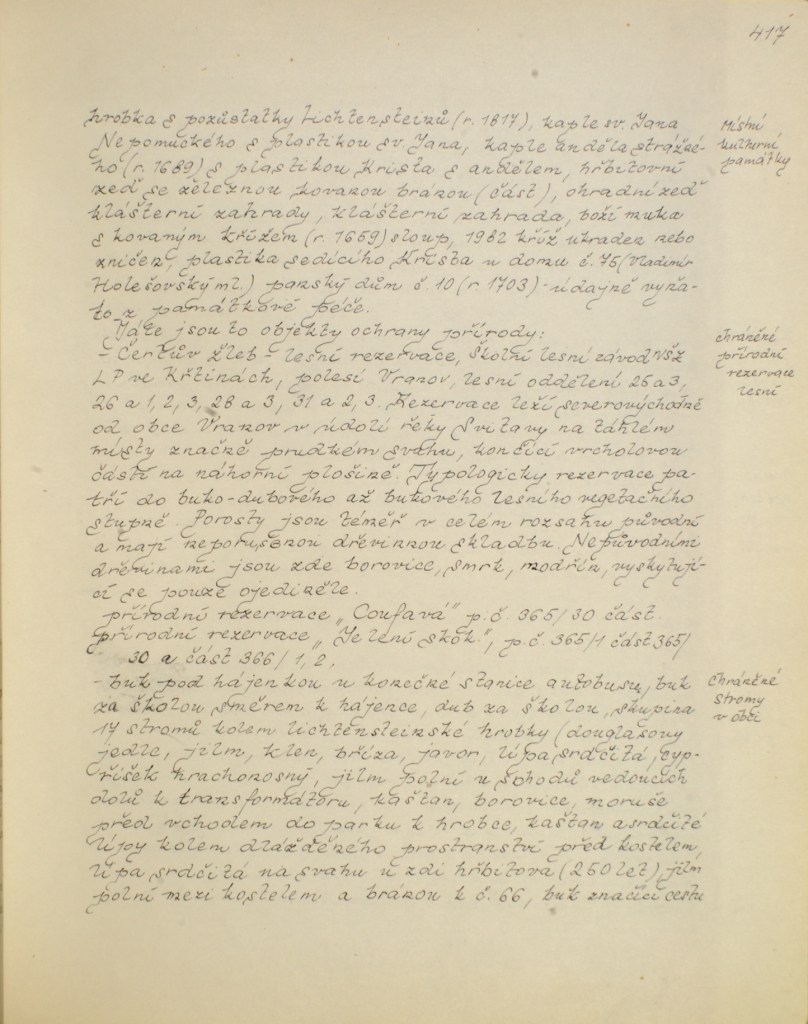 417
hrobka s pozůstatky Lichtensteinů (r. 1817), kaple sv. Jana
Nepomuckého s plastikou sv. Jana, kaple anděla strážné-
ho (r. 1689) s plastikou Krista s andělem, hřbitovní
zeď se železnou kovanou bránou (část), ohradní zeď
klášterní zahrady, klášterní zahrada, boží muka
s kovaným křížem (r. 1659) sloup, 1982 kříž ukraden nebo
zničen, plastika sedícího Krista u domu č. 75 (Vladimír
Holešovský ml.) panský dům č. 10 (r 1703) - údajně vyňa-
to z památkové péče.
Místní
kulturní
památky
Dále jsou to objekty ochrany přírody:
- Čertův žleb - lesní rezervace, Školní lesní závod VŠZ
LP ve Křtinách, polesí Vranov, lesní oddělení 25 a 3,
26 a 1, 2, 3, 28 a 3, 31 a 2, 3. Rezervace leží severovýchodně
od obce Vranov v údolí řeky Svitavy na táhlém
místy značně prudkém svahu, končící vrcholovou
částí na náhorní plošině. Typologicky rezervace pa-
tří do buko-dubového až bukového lesního vegetačního
stupně. Porosty jsou téměř v celém rozsahu původní
a mají neporušenou dřevinnou skladbu. Nepůvodními
dřevinami jsou zde borovice, smrk, modřín, vyskytují-
cí se pouze ojediněle.
chráněné
přírodní
rezervace
lesní
přírodní rezervace „Coufavá" p.č. 365/30 část.
přírodní rezervace „Jelení skok", p.č. 365/1 část 365/
30 a část 366/1, 2.
- buk pod hájenkou u konečné stanice autobusu, buk
za školou směrem k hájence, dub za školou, skupina
17 stromů kolem lichtensteinské hrobky (douglasovy
jedle, jilm, klen, bříza, javor, lípa srdčitá, cyp-
řišek hrachonosný, jilm polní u schodů vedoucích
dolů k transformátoru, kaštan, borovice, moruše
před vchodem do parku k hrobce, kaštan a srdčité
lípy kolem dlážděného prostranství před kostelem,
lípa srdčitá na svahu u zdi hřbitova (250 let), jilm
polní mezi kostelem a bránou k č. 66, buk značící cestu
Chráněné
stromy
v obci